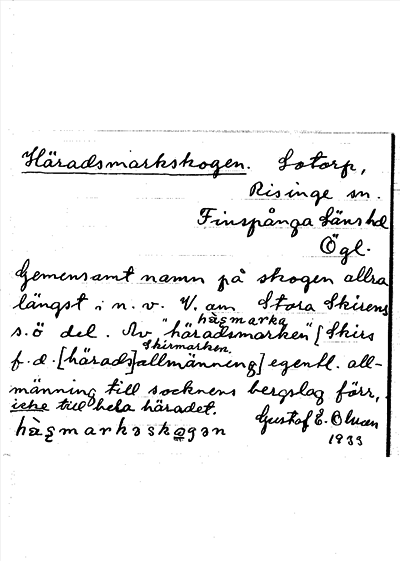 Häradsmarkskogen. Sotorp,
Risinge sn.
Finspånga Länshd
Ögl.
Gemensamt namn på skogen allra
längst i n. v. V. om Stora Skirens
hä̀Ɡmarkǝ
s.ö del. Av "häradsmarken" [Skirs
Skirmarken.
f. d. [härads]allmänning] egentl. all-
männing till socknens bergslag förr,
icke till hela häradet.
Gustaf E. Olsson
1933